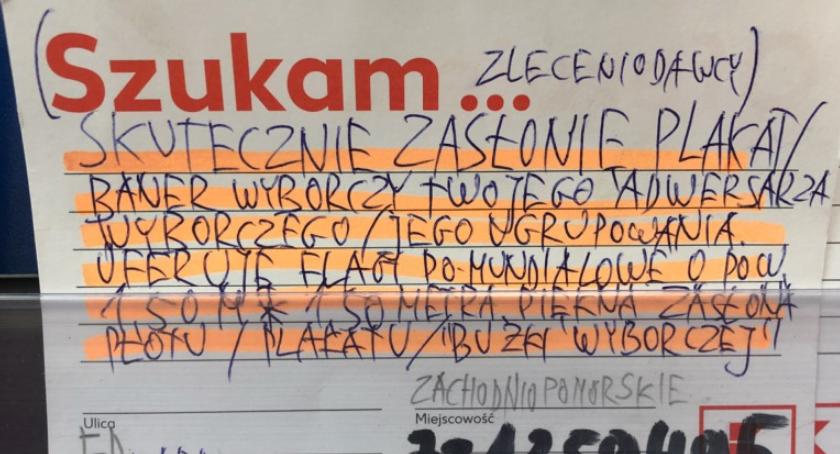 (Szukam... ZLECENIODAWCY)
SKUTECZNIE ZASŁONIE PLAKAT/
BANER WYBORCZY TWOJEGO ADWERSARZA
WYBORCZEGO/JEGO UGRUPOWANIA.
OFERUJE FLAGI PO-MUNDIALOWE O POW.
150 M * 150 METRA PIĘKNA ZASŁONA
PŁOTU / PLAKATU/"BUŹKI WYBORCZEJ"
ZACHODNIOPOMORSKIE
Ulica
Miejscowość